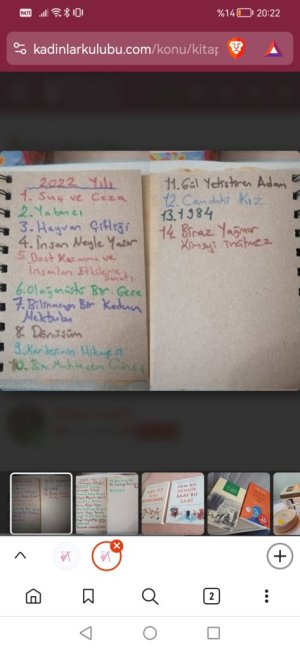 %14 20:22
kadinlarkulubu.com/konu/kitap
2022 Yılı
1. Suç ve Ceza
2. Yabancı
3. Hayvan Çiftliği
4. İnsan Neyle Yaşar
5. Dost Kazanma ve
İnsanları Etkileme
Sanatı
6. Olağanüstü Bir Gece
7. Bilinmeyen Bir Kadının
Mektubu
8. Dönüşüm
9.
10. Bin Muhteşem Güneş
11. Gül Yetiştiren Adam
12. Camdaki Kız
13. 1984
14. Biraz Yağmur
Kimseyi İncitmez
2